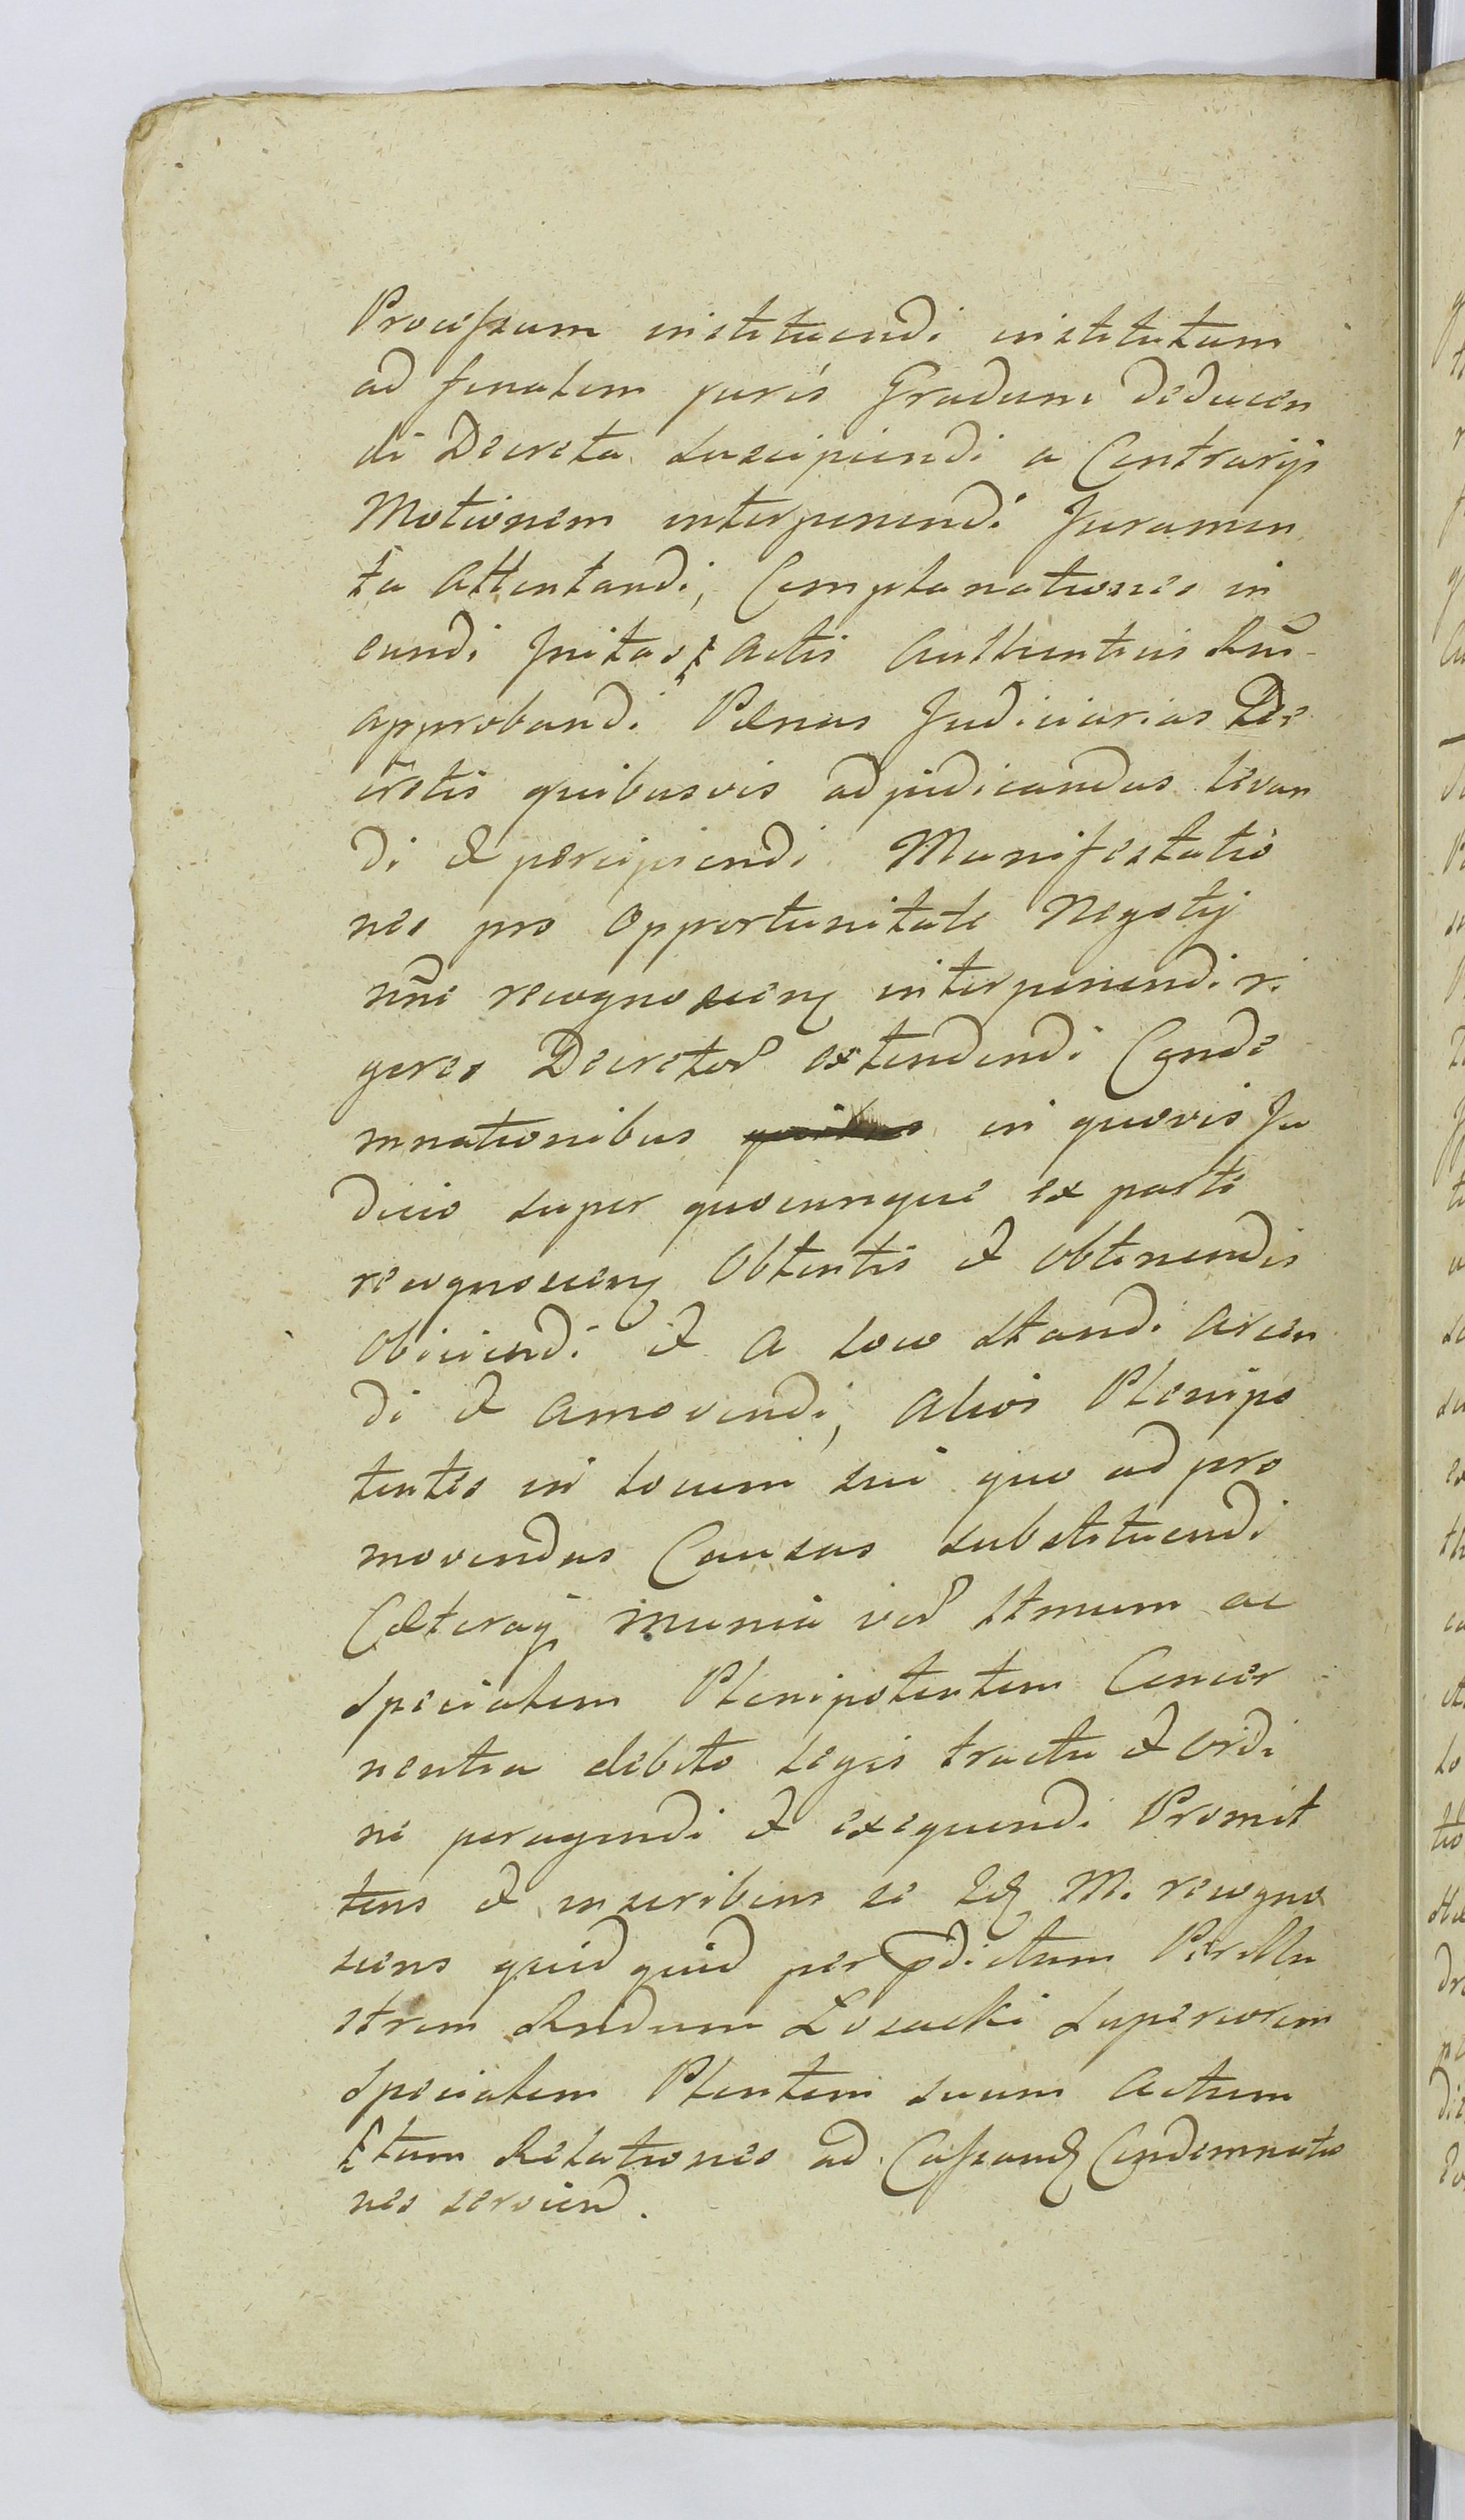 Processum instituendi institutum
ad finalem juris Gradum deducen
di Decreta suscipiendi a Contrarijs
Motionem interponendi Juramen
ta attentandi, Complanationes in
eundi Initasq actis authenticis Rni
approbandi Pænas Judiciarias De
cretis quibusvis adjudicandas levan
di & percipiendi Manifestatio
nes pro opportunitate Negotij
nne recognoscenz interponendi ri
gores Decretor extendendi Conde
mnationibus in quovis Ju
dicio super quocunque ex parte
recognoscenz Obtentis & obtinendis
obiiciendi & a loco standi arcen
di & amovendi, alios Plenipo
tentes in locum sui quo ad pro
movendas Causas substituendi
Cæteraq munia ver ltmum ac
specialem Plenipotentem Concer
nentia debito legis tractu & ordi
ne peragendi & exequendi Promit
tens & inscribens se M. recogno
scens quid quid per pdictum Perillu
strem Rndum Losacki Superiorem
specialem Plentem suum actum
Relationes ad Cassand Condemnatio
nes servien.